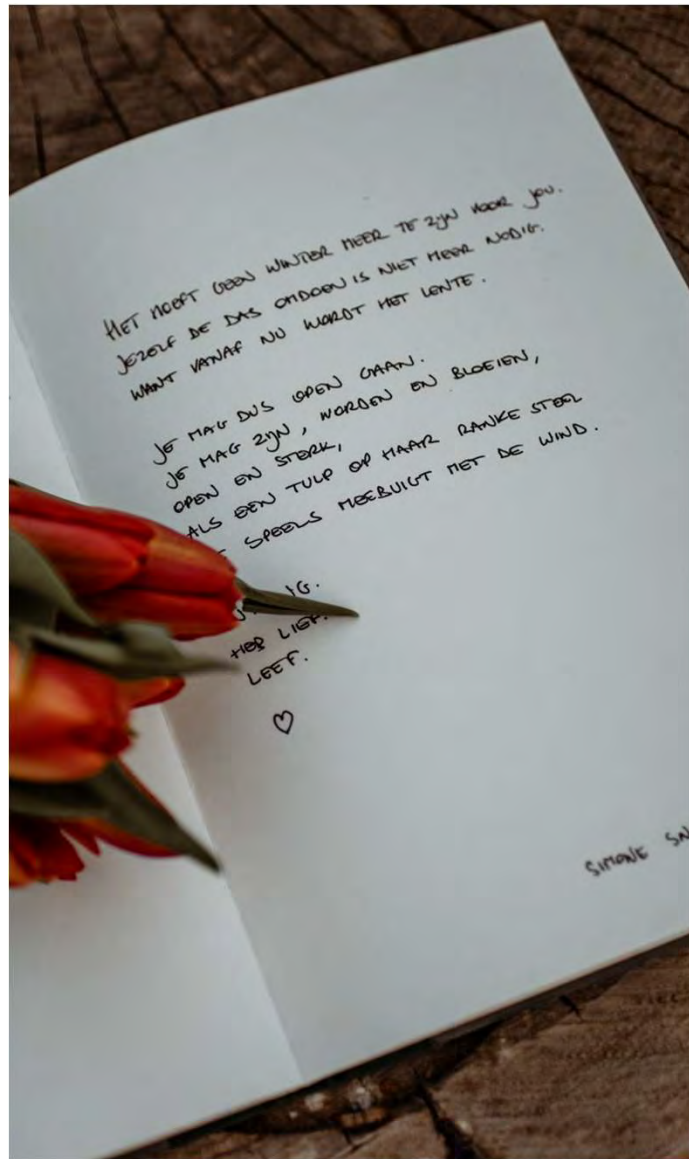 HET HOEFT GEEN WINTER MEER TE ZIJN VOOR JOU.
JEZELF DE DAS OMDOEN IS NIET MEER NODIG.
WANT VANAF NU WORDT HET LENTE.
JE MAG DUS OPEN GAAN.
JE MAG ZIJN, WORDEN EN BLOEIEN,
OPEN EN STERK,
ALS EEN TULP OP HAAR RANKE STEEL
SPEELS MEEBUIGT MET DE WIND.
HEB LIEF.
LEEF.
SIMONE